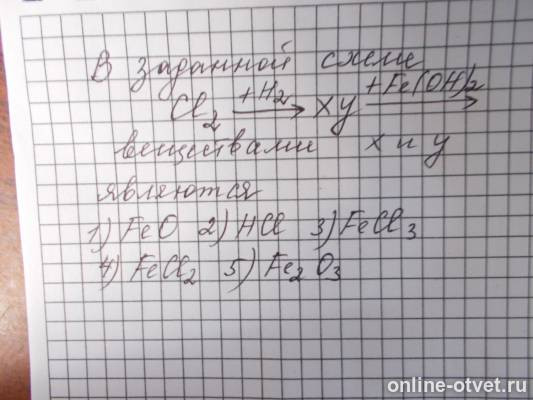 В заданной схеме
Cl₂ +H₂→ xy +Fe(OH)₂→
веществами x и y
являются
1) FeO 2) HCl 3) FeCl₃
4) FeCl₂ 5) Fe₂O₃
online-otvet.ru